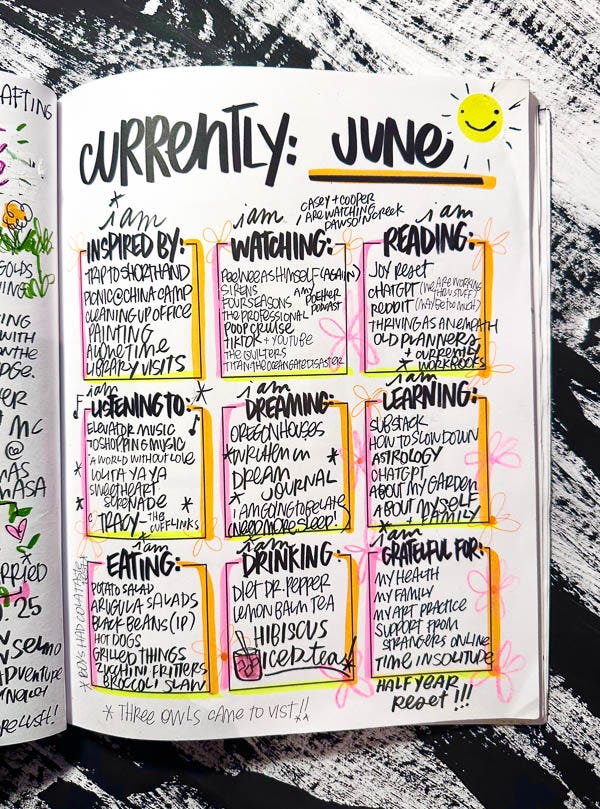 AFTING
GOLDS
WITH
MC
@
MASA
. 25
CURRENTLY: JUNE
CASEY + COOPER
ARE WATCHING
DAWSON'S CREEK
i am
INSPIRED BY:
TRIP TO SHORTHAND
PICNIC @ CHINA CAMP
CLEANING UP OFFICE
PAINTING
ALONE TIME
LIBRARY VISITS
i am
WATCHING:
PEE WEE AS HIMSELF (AGAIN)
SIRENS
FOUR SEASONS
AMY
POEHLER
PODCAST
THE PROFESSIONAL
POOP CRUISE
TIKTOK + YOUTUBE
THE QUILTERS
TITAN: THE OCEANGATE DISASTER
i am
READING:
JOY RESET
CHATGPT (WE ARE WORKING
THRU STUFF)
REDDIT (MAYBE TOO MUCH)
THRIVING AS AN EMPATH
OLD PLANNERS
+ CURRENTLY
WORKBOOKS
i am
LISTENING TO:
ELEVATOR MUSIC
70 SHOPPING MUSIC
A WORLD WITHOUT LOVE
LOLITA YA YA
SWEETHEART
SERENADE
TRACY - THE
CUFFLINKS
i am
DREAMING:
OREGON HOUSES
DREAM
JOURNAL
I AM GOING TO BE LATE
(NEED MORE SLEEP!)
i am
LEARNING:
SUBSTACK
HOW TO SLOW DOWN
ASTROLOGY
CHATGPT
ABOUT MY GARDEN
ABOUT MYSELF
+ FAMILY
i am
EATING:
POTATO SALAD
ARUGULA SALADS
BLACK BEANS (IP)
HOT DOGS
GRILLED THINGS
ZUCCHINI FRITTERS
BROCCOLI SLAW
i am
DRINKING:
DIET DR. PEPPER
LEMON BALM TEA
HIBISCUS
ICED TEA
i am
GRATEFUL FOR:
MY HEALTH
MY FAMILY
MY ART PRACTICE
SUPPORT FROM
STRANGERS ONLINE
TIME IN SOLITUDE
HALF YEAR
RESET !!!
* THREE OWLS CAME TO VISIT!!